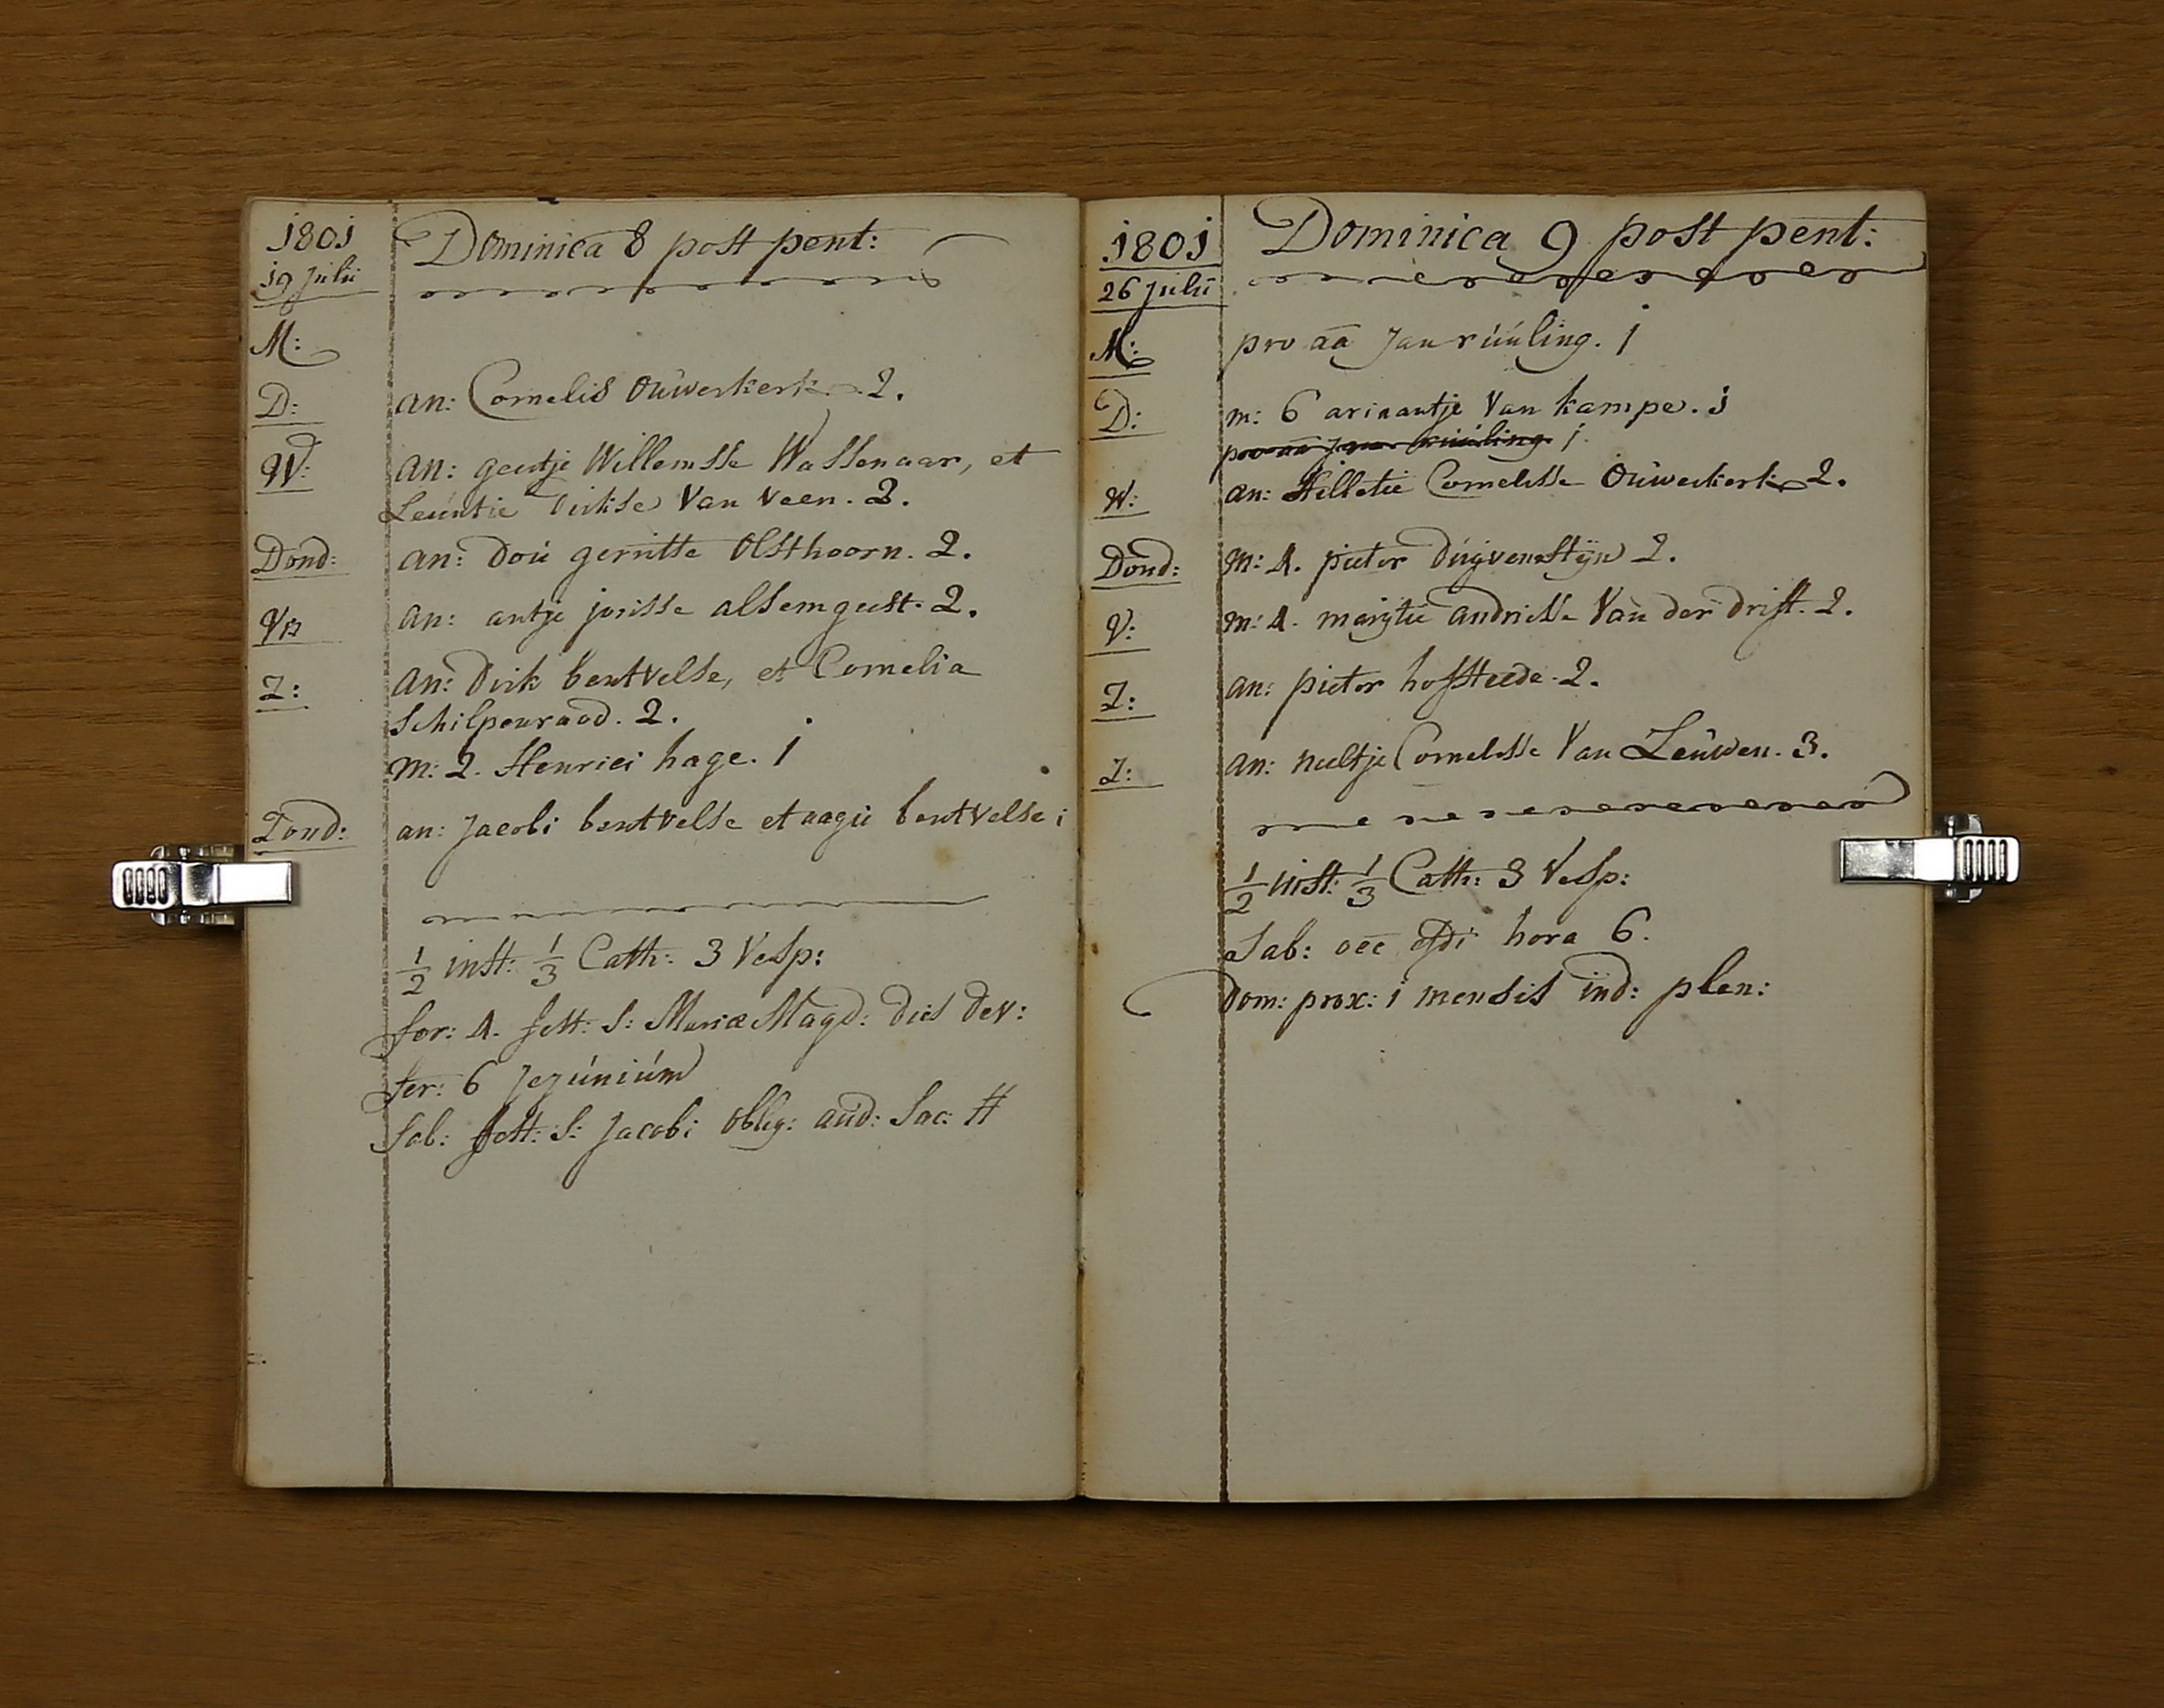 1801
19 Julii
Dominica 8 post pent:
M:
D: an: Cornelis Ouwerkerk 2.
W: an: geertje Willemsse Wassenaar, et
Leúntie Dirkse Van Veen. 2.
Dond: an: Doú gerritse Olsthoorn. 2.
Vr an: antje jorisse alsemgeest. 2.
Z: an: Dirk bentvelse, et Cornelia
Schilpenraod. 2.
m: 2. Henrici hage. 1
Zond: an: Jacobi bentvelse et aagie bentvelse i
1/2 inst: 1/3 Cath: 3 Vesp:
fer: 4. fest: S: Mariæ Magd: dies dev:
fer: 6 Jejúniúm
Sab: fest: S: Jacobi oblig: aud: Sac: #
1801
26 Julii
Dominica 9 post pent:
M: pro aa Jan rúúling. j
D: m: 6 ariaantje Van kampe. j
pro aa Jan rúúling. j.
W: an: Hilletie Cornelisse Oúwerkerk 2.
Dond: m: 4. pieter Dúyvenstijn 2.
V: m: 4. maijtie andriesse Van der drift. 2.
Z: an: pieter hofsteede. 2.
Z: an: neeltje Cornelisse Van Leúwen. 3.
1/2 inst: 1/3 Cath: 3 Vesp:
Sab: occ hora 6.
Dom: prox: i mensis ind: plen: